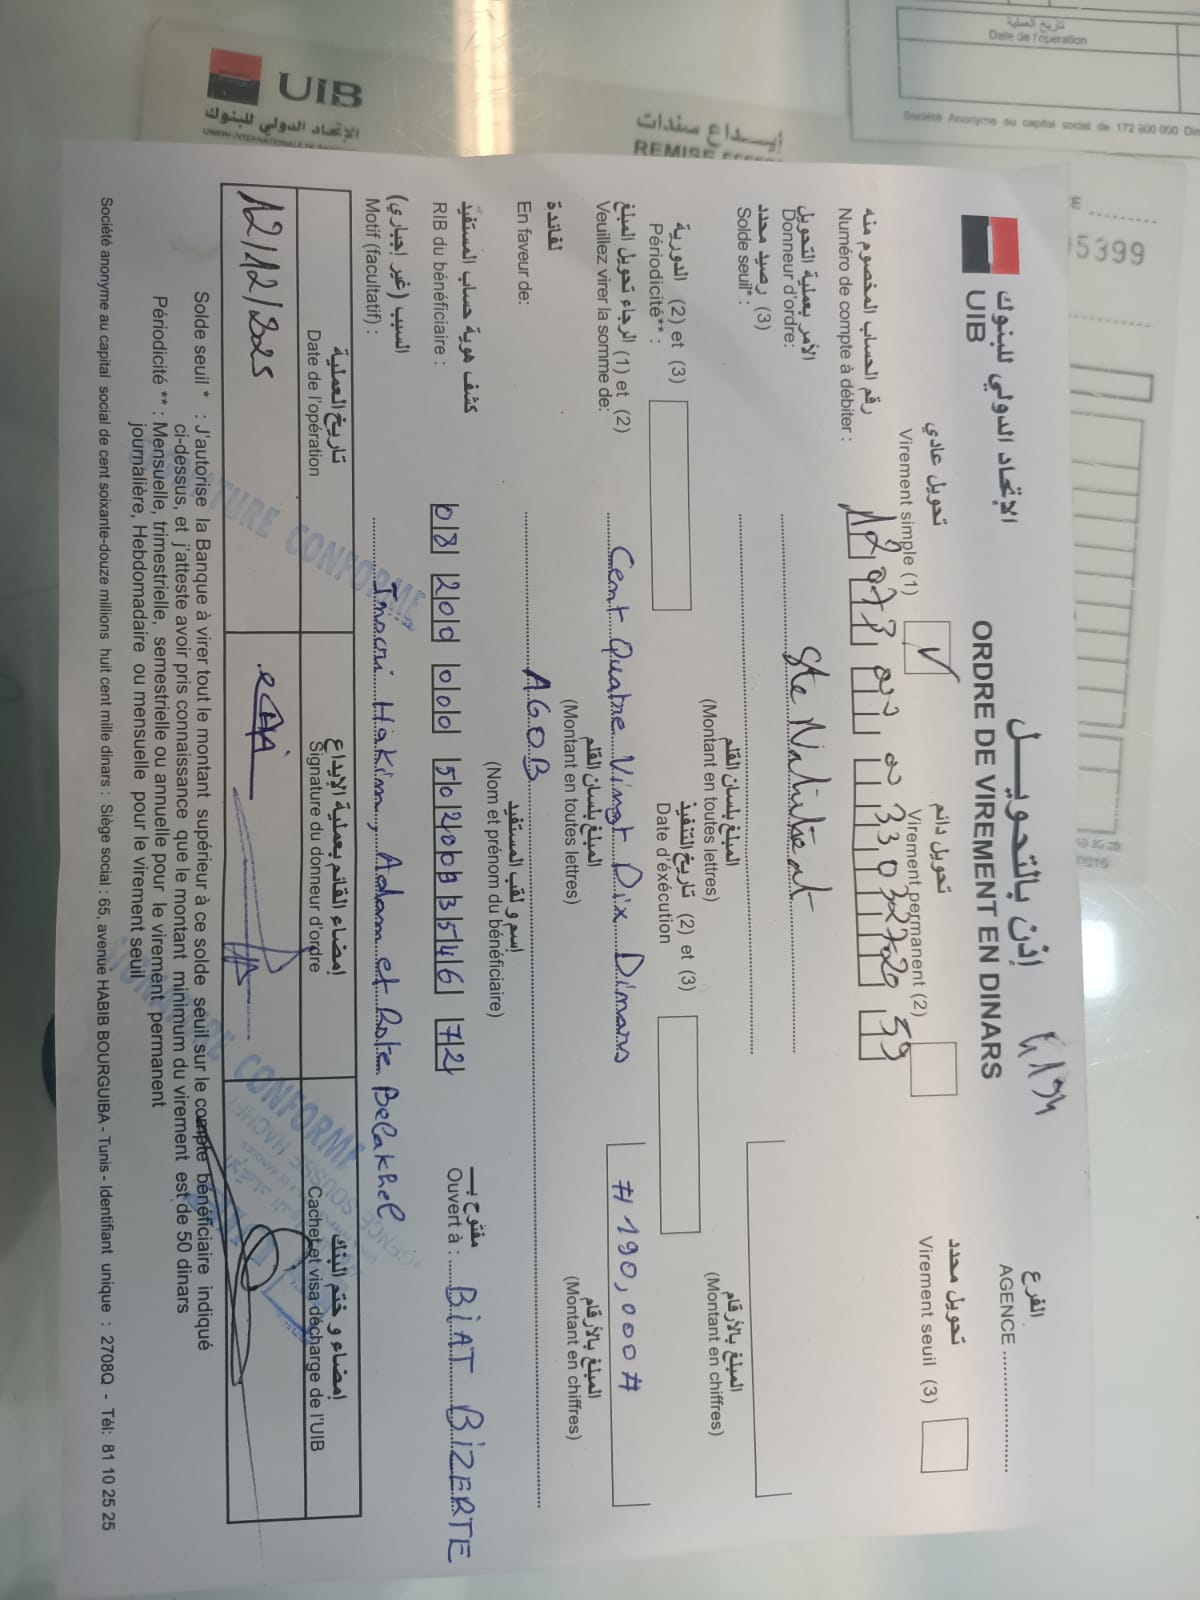 UIB
الإتحاد الدولي للبنوك
إيداع سندات
تاريخ العملية
Date de l'opération
Société Anonyme au capital social de 172 800 000
5399
الإتحاد الدولي للبنوك
UIB
إذن بالتحويل
ORDRE DE VIREMENT EN DINARS
الفرع
AGENCE
تحويل عادي
Virement simple (1)
تحويل دائم
Virement permanent (2)
تحويل محدد
Virement seuil (3)
رقم الحساب المخصوم منه
Numéro de compte à débiter :
الآمر بعملية التحويل
Donneur d'ordre:
Ste
(3) رصيد محدد
Solde seuil* :
المبلغ بلسان القلم
(Montant en toutes lettres)
المبلغ بالأرقام
(Montant en chiffres)
(3) et (2) الدورية
Périodicité** :
(3) et (2) تاريخ التنفيذ
Date d'éxécution
(2) et (1) الرجاء تحويل المبلغ
Veuillez virer la somme de:
Cent Quatre Vingt Dix Dinars
# 190,000 #
المبلغ بلسان القلم
(Montant en toutes lettres)
المبلغ بالأرقام
(Montant en chiffres)
لفائدة
En faveur de:
AGOB
إسم و لقب المستفيد
(Nom et prénom du bénéficiaire)
كشف هوية حساب المستفيد
RIB du bénéficiaire :
08 200 000 5020003546 72
مفتوح بـ
Ouvert à : BIAT BIZERTE
السبب (غير إجباري)
Motif (facultatif) :
Hakim, Adam et Belakhel
تاريخ العملية
Date de l'opération
إمضاء القائم بعملية الإيداع
Signature du donneur d'ordre
إمضاء و ختم البنك
Cachet et visa décharge de l'UIB
12/12/2025
SIGNATURE CONFORME
SIGNATURE CONFORME
Solde seuil * : J'autorise la Banque à virer tout le montant supérieur à ce solde seuil sur le compte bénéficiaire indiqué
ci-dessus, et j'atteste avoir pris connaissance que le montant minimum du virement est de 50 dinars
Périodicité ** : Mensuelle, trimestrielle, semestrielle ou annuelle pour le virement permanent
journalière, Hebdomadaire ou mensuelle pour le virement seuil
Société anonyme au capital social de cent soixante-douze millions huit cent mille dinars : Siège social : 65, avenue HABIB BOURGUIBA - Tunis - Identifiant unique : 2708Q - Tél: 81 10 25 25